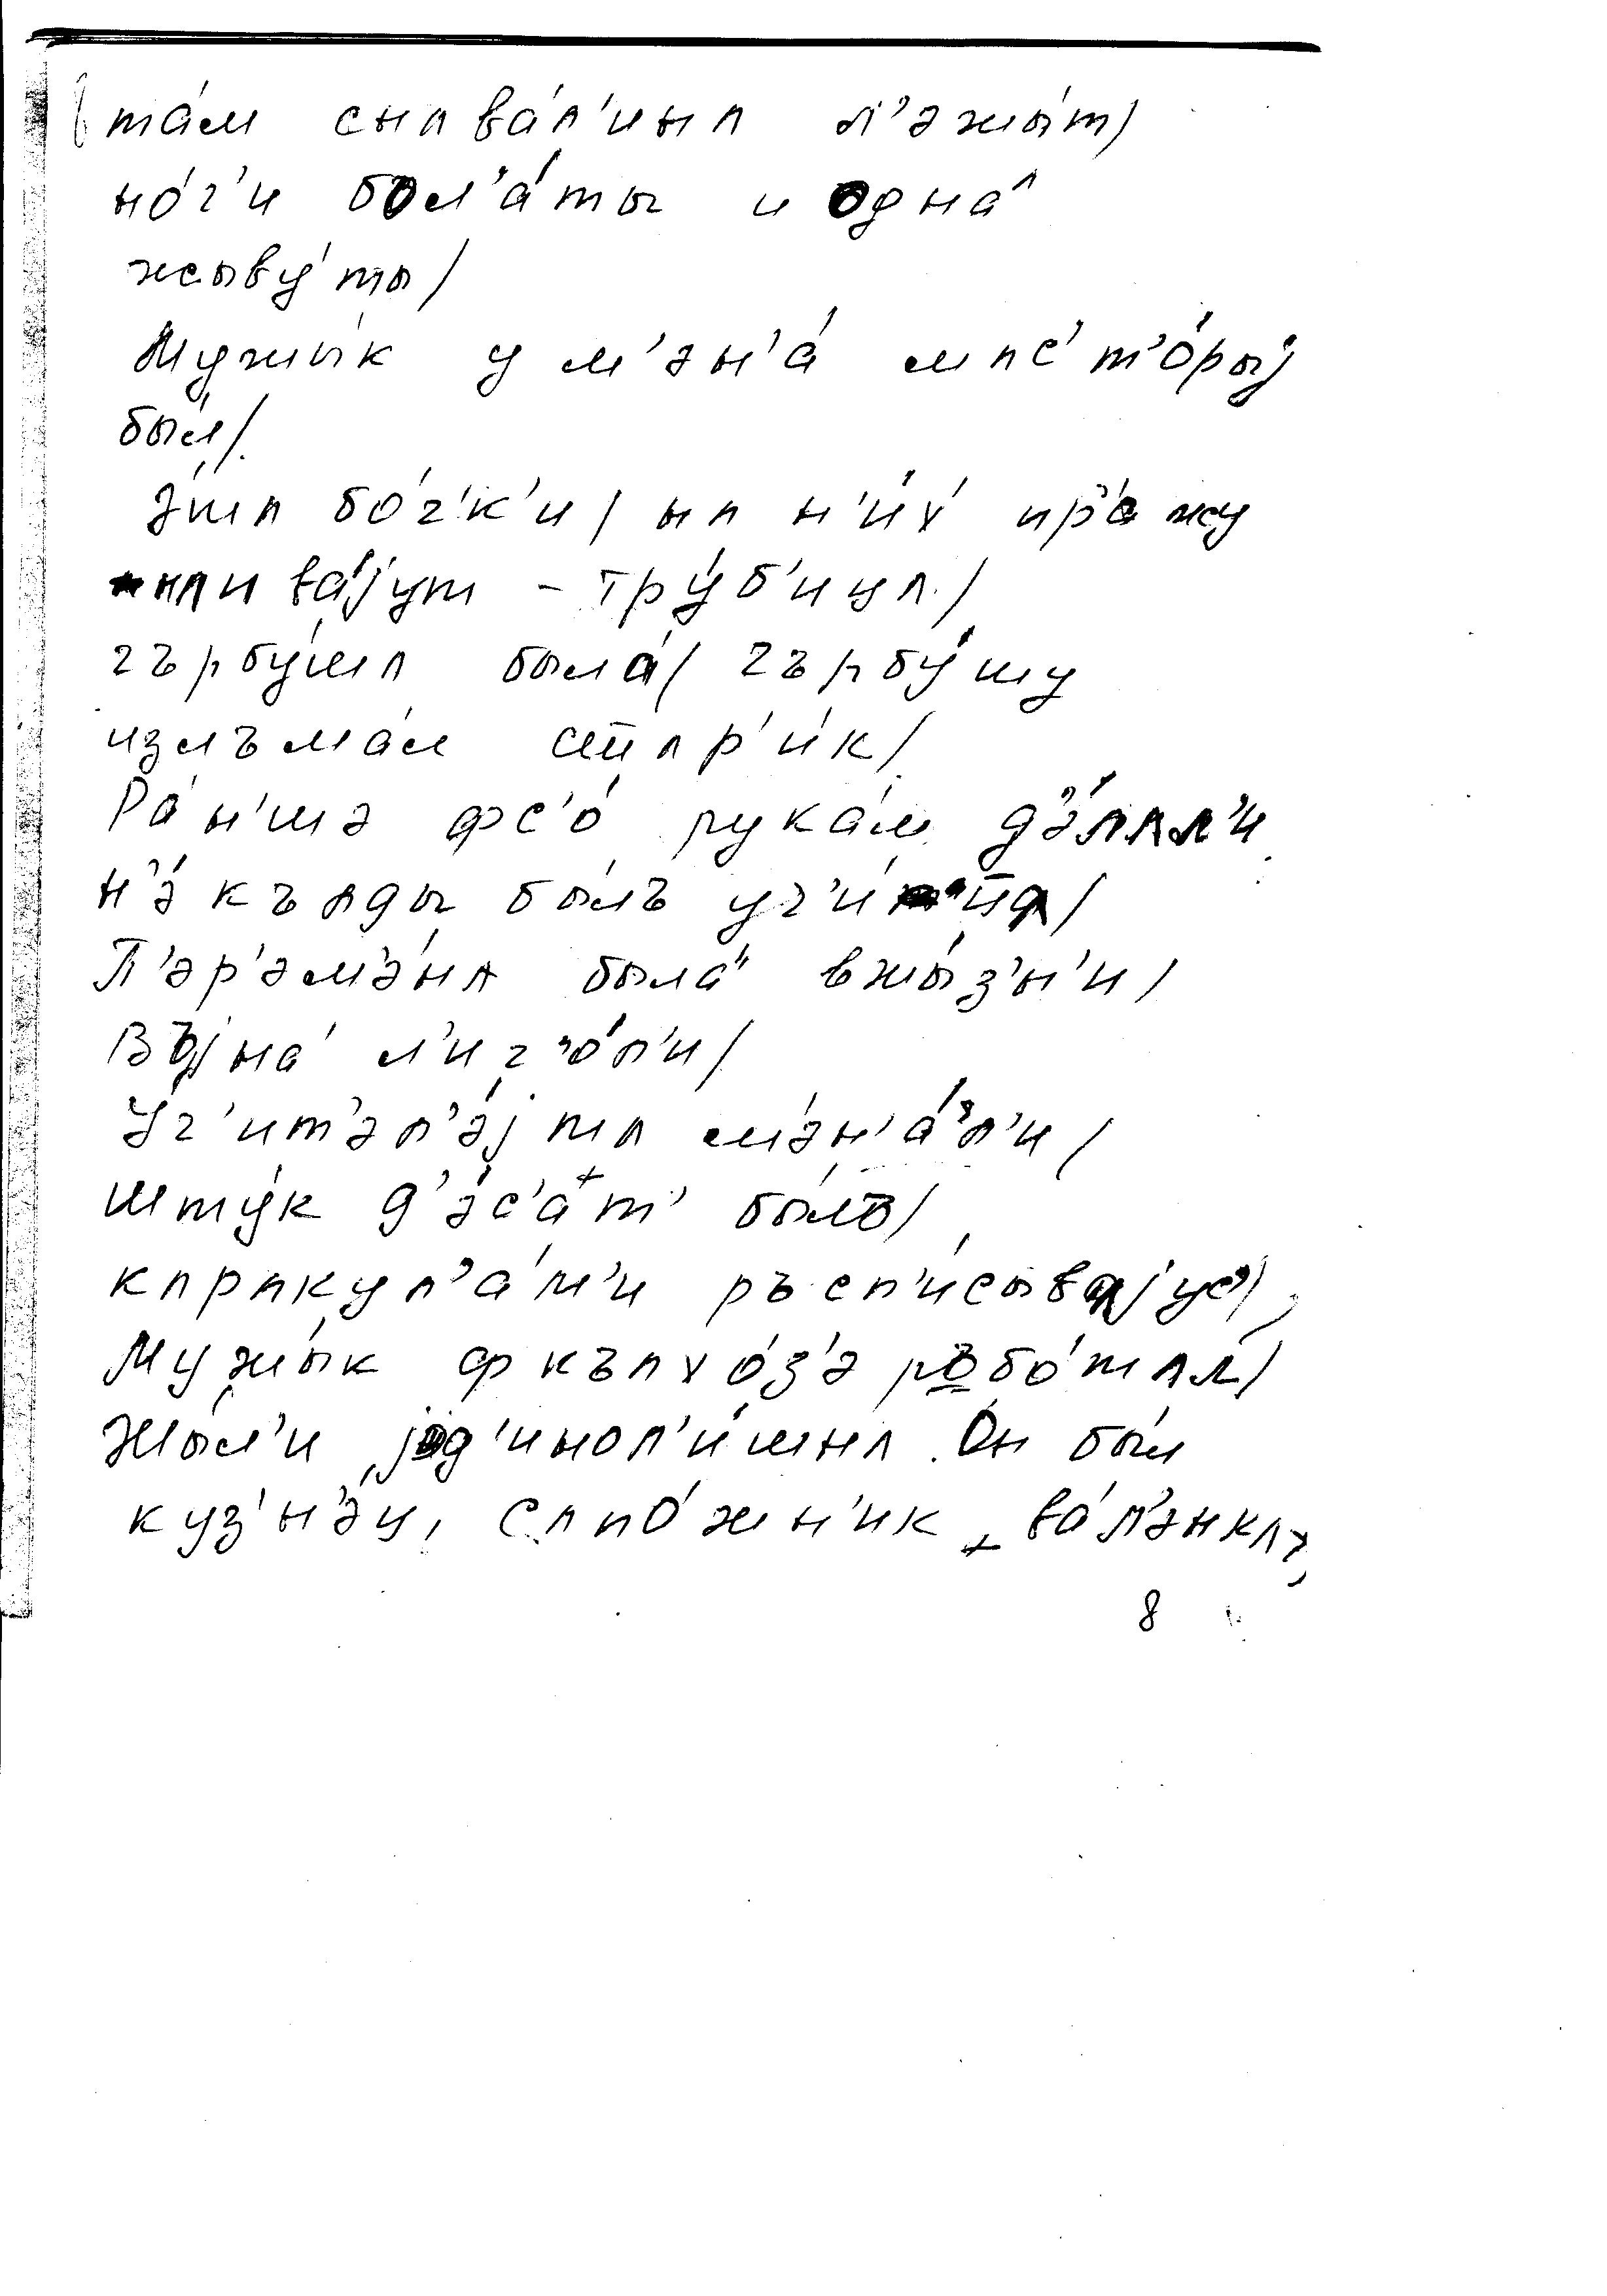 та́м снʌва́л'инʌ л'эжы́т/
но́г'и бол'а́ты и одна́
жыву́ты/
Мужы́к у м'эн'а́ мʌс'т'о́рыj
бы́л/
э́тʌ бо́ч'к'и/ нʌ н'и́х пр'а́жу
нʌива́jут – тру́б'ицʌ/
гърбу́шʌ была́/ гърбу́шу
излъма́л стʌр'и́к/
Ра́н'шэ фс'о́ рука́м д'э́лʌл'и
н'э́къʌды бы́лъ уч'и́
П'эр'эм'э́нʌ была́ вжы́з'н'и/
Въjна́ л'игч'о́л'и/
Уч'ит'эл'э́j тʌ м'эн'а́л'и/
шту́к д'эс'а́т' бы́ло/
кʌрʌкул'а́м'и ръсп'и́сывʌjус'/
Мужы́к фкълхо́з'э робо́тʌл/
Жы́л'и jод'инол'и́шнʌ. О́н бы́л
куз'н'э́ц, сʌпо́жн'ик, ва́л'энкʌ,
8